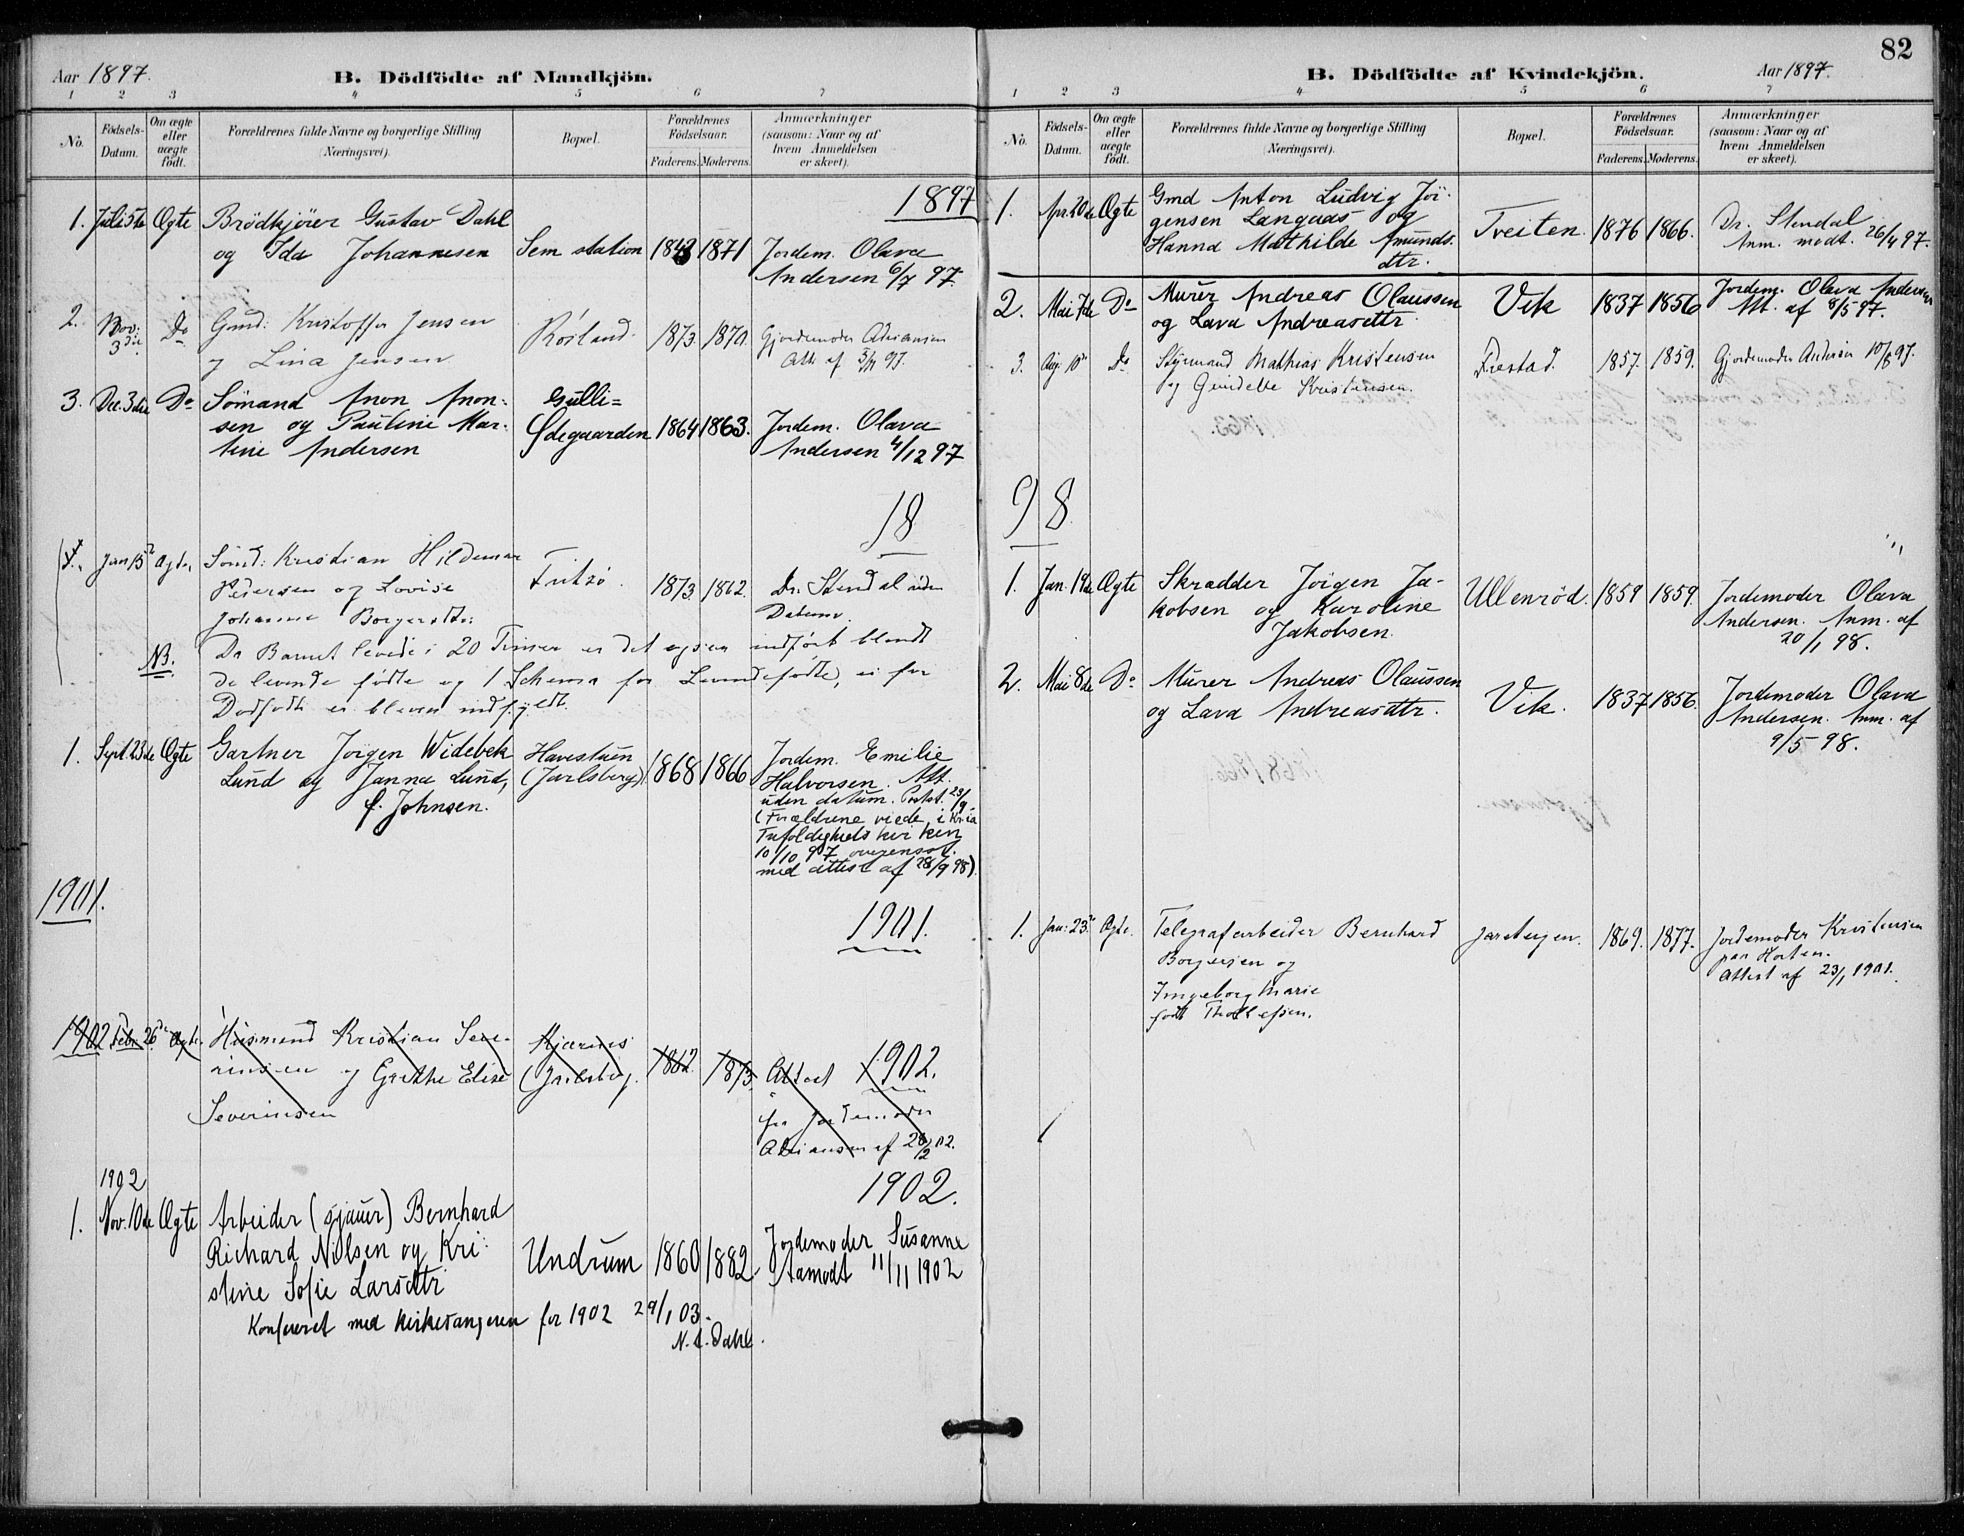 Aar 1897.
B. Dödfödte af Mandkjön.
1 2 3 4 5 6 7
No.
Födsels-Datum.
Om ægte eller uægte födt.
Forældrenes fulde Navne og borgerlige Stilling
(Næringsvei).
Bopæl.
Forældrenes Födselsaar.
Faderens. Moderens.
Anmærkninger
(saasom: Naar og af
hvem Anmeldelsen
er skeet).
1897
1. Juli 5te Ægte Brödkjörer Gustav Dahl
og Ida Johannesen
Sem station 1871 Jordem. Olava
Andersen 6/7 97.
2. Nov: 3die Do Gmd: Kristoffer Jensen
og Lina Jensen
Rösland. 1873. 1870. Gjordemoder Adriansen
Att. af 5/11 97.
3. Dec. 3die Do Sömand Anon Anon-
sen og Pauline Mar-
tine Andersen
Gulli=
Ödegaarden 1864 1863. Jordem. Olava
Andersen 4/12 97
18
Jan 15de Ægte Sömd: Kristian Hildemar
Pedersen og Lovise
Johanne Borgersdtr:
Fritzö. 1873. 1862. Dr. Stendal uden
Datum.
NB. Da Barnet levede i 20 Timer er det ogsaa indfört blandt
de levende födte og 1 Schema for Levendefödte, ei for
Dödfödte er bleven udfyldt.
1. Sept. 23de Ægte Gartner Jörgen Widebek
Lund og Janna Lund,
f. Johnsen.
Havestuen
(Jarlsberg) 1868 1866 Jordem. Emilie
Halvorsen. Att.
uden datum. Postst. 23/9.
(Forældrene viede i Kr.ia
Trefoldigheds kirken
10/10 97 overensst.
med attest af 28/9 98).
1901.
1901.
1902 Febr. 26de Ægte. Husmand Kristian Seve-
rinsen og Grethe Elise
Severinsen
Kjærnes
(Jarlsberg. 1862. 1873. Attest
fra Jordemoder
Adriansen af 28/2 02.
1902.
1902
1902.
1. Nov. 10de Ægte Arbeider (sjauer) Bernhard
Richard Nilsen og Kri-
stine Sofie Larsdtr
Undrum 1860 1882. Jordemoder Susanne
Aamodt 11/11 1902
Konfereret med kirkesangeren for 1902 29/1 03.
N. A. Dahl.
82
B. Dödfödte af Kvindekjön.
Aar 1897.
1 2 3 4 5 6 7
No.
Födsels-Datum.
Om ægte eller uægte födt.
Forældrenes fulde Navne og borgerlige Stilling
(Næringsvei).
Bopæl.
Forældrenes Födselsaar.
Faderens. Moderens.
Anmærkninger
(saasom: Naar og af
hvem Anmeldelsen
er skeet).
1. Apr. 20de Ægte Gmd Anton Ludvig Jör-
gensen Langaas og
Hanna Mathilde Amunds-
dtr.
Tveiten. 1876 1866. Dr. Stendal
Anm. modt. 26/4 97.
2. Mai 7de Do Murer Andreas Olaussen
og Lava Andreasdtr.
Vik 1837 1856 Jordem. Olava Andersen
Att. af 8/5 97.
3. Aug. 10de Do Styrmand Mathias Kristensen
og Gundelle Kristensen.
Frestad. 1857. 1859. Gjordemoder Andersen 10/8 97.
98
1. Jan. 19de Ægte Skrædder Jörgen Ja-
kobsen og Karoline
Jakobsen.
Ullenröd. 1859 1859. Jordemoder Olava
Andersen. Anm. af
20/1 98.
2. Mai 8de Do Murer Andreas Olaussen
og Lava Andreasdtr.
Vik. 1837 1856. Jordemoder Olava
Andersen. Anm. af
9/5 98.
1. Jan: 23de Ægte. Telegrafarbeider Bernhard
Borgersen og
Ingeborg Marie
född Thollefsen.
Jareteigen. 1869. 1877. Jordemoder Kristensen
paa Horten.
Attest af 23/1 1901.